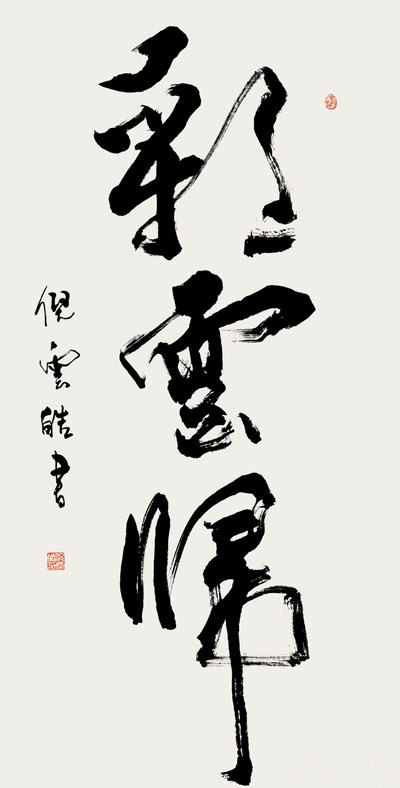 彩雲歸
倪雲皓書